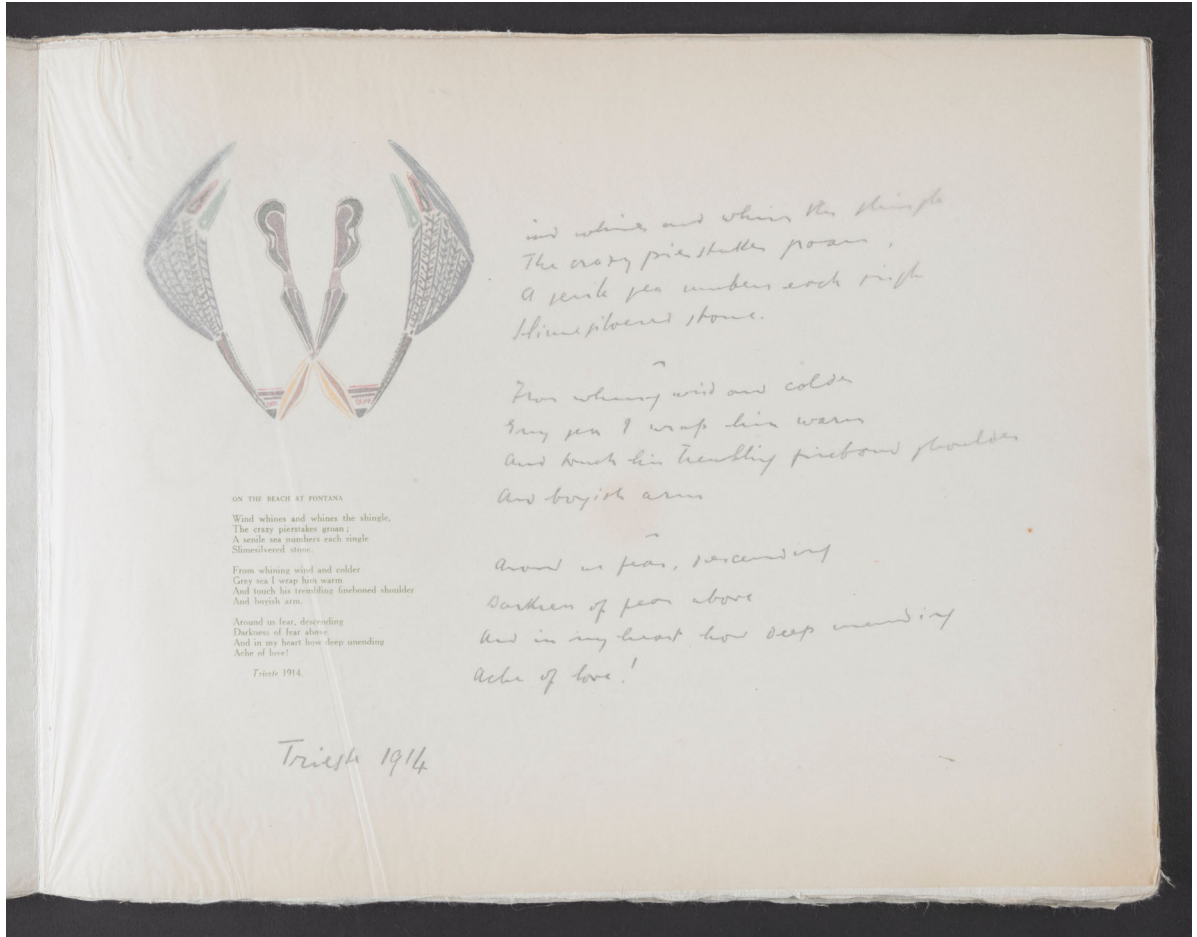 ON THE BEACH AT FONTANA
Wind whines and whines the shingle,
The crazy pierstakes groan ;
A senile sea numbers each single
Slimesilvered stone.
From whining wind and colder
Grey sea I wrap him warm
And touch his trembling fineboned shoulder
And boyish arm.
Around us fear, descending
Darkness of fear above
And in my heart how deep unending
Ache of love!
Trieste 1914.
ind whines and whines the shingle
The crazy pierstakes groan,
A senile sea numbers each single
Slimesilvered stone.
From whining wind and colder
Grey sea I wrap him warm
And touch his trembling fineboned shoulder
And boyish arm
Around us fear, descending
Darkness of fear above
And in my heart how deep unending
Ache of love!
Trieste 1914